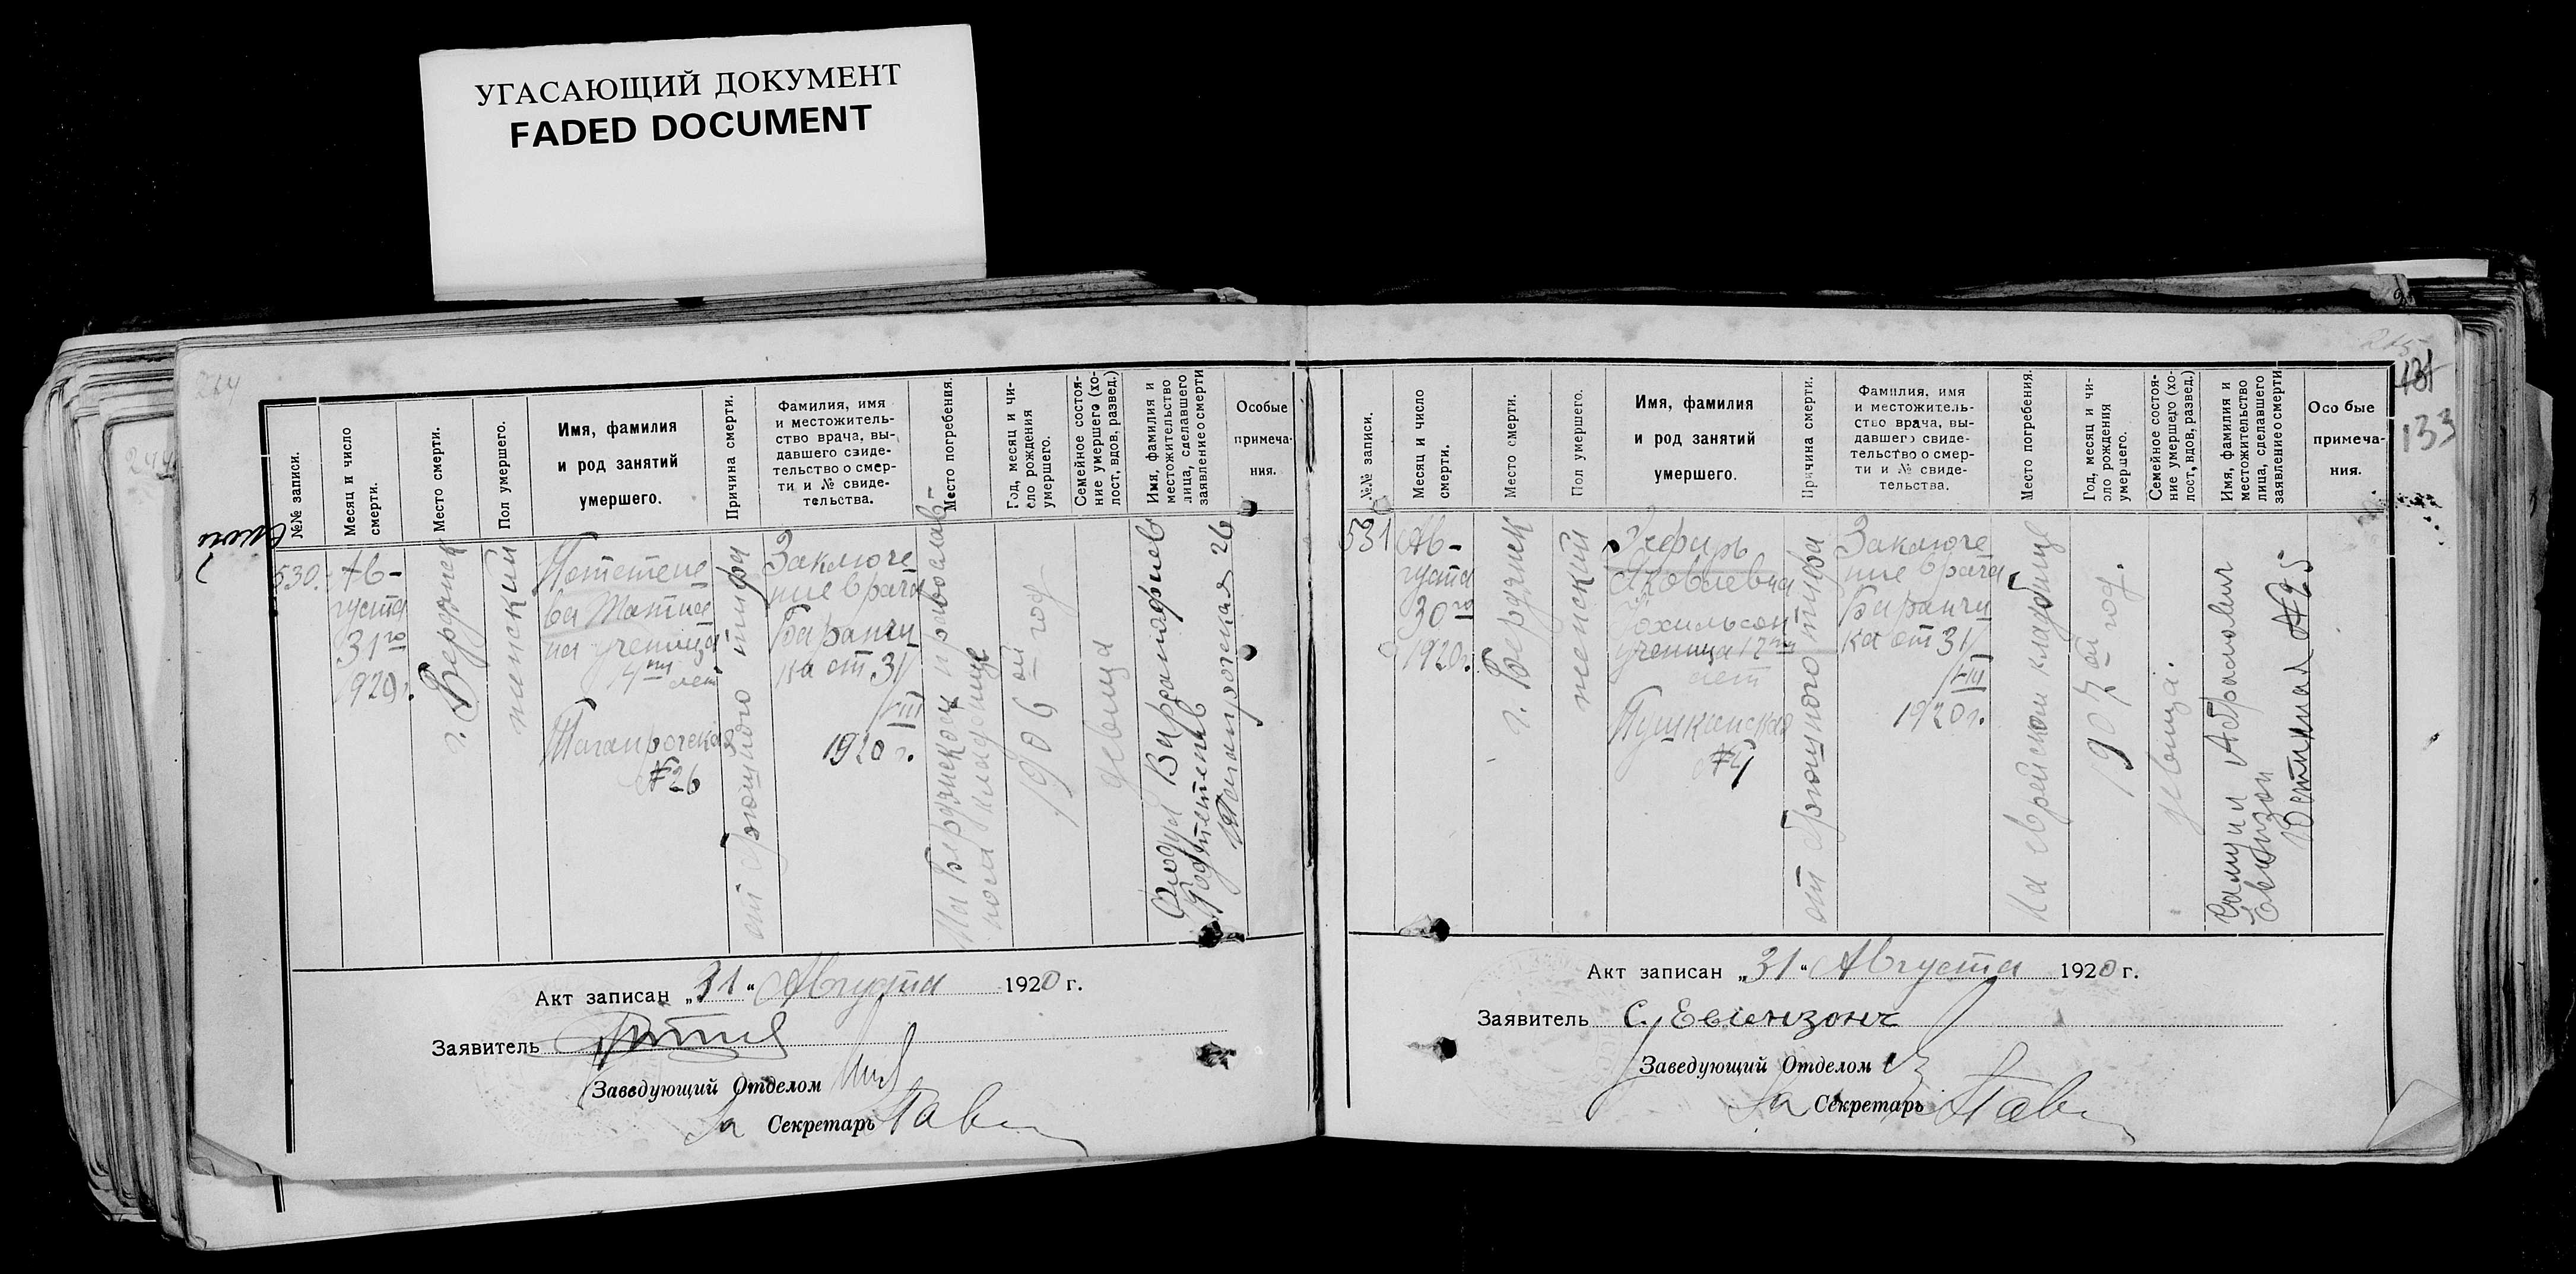 УГАСАЮЩИЙ ДОКУМЕНТ
FADED DOCUMENT
214
№№ записи.
Месяц и число
смерти.
Место смерти.
Пол умершего.
Имя, фамилия
и род занятий
умершего.
Причина смерти.
Фамилия, имя
и местожитель-
ство врача, вы-
давшего свиде-
тельство о смер-
ти и № свиде-
тельства.
Место погребения.
Год, месяц и чи-
сло рождения
умершего.
Семейное состоя-
ние умершего (хо-
лост, вдов, развед.)
Имя, фамилия и
местожительство
лица, сделавшего
заявление о смерти
Особые
примеча-
ния.
530.
Ав-
густа
31го
1920г.
г. Бердянск
женский
ва Татиа
на ученица
14ти лет
Таганрогская
№26
от брюшного тифа
Заключе
ние врача
Баранчи
ка от 31/
VIII
1920 г.
На Бердянском православ-
ном кладбище
1906ой год
девица
Таганрогская 26
Акт записан „31“ Августа 1920 г.
Заявитель
Заведующий Отделом
За Секретарь
215
131
133
№№ записи.
Месяц и число
смерти.
Место смерти.
Пол умершего.
Имя, фамилия
и род занятий
умершего.
Причина смерти.
Фамилия, имя
и местожитель-
ство врача, вы-
давшего свиде-
тельство о смер-
ти и № свиде-
тельства.
Место погребения.
Год, месяц и чи-
сло рождения
умершего.
Семейное состоя-
ние умершего (хо-
лост, вдов, развед.)
Имя, фамилия и
местожительство
лица, сделавшего
заявление о смерти
Особые
примеча-
ния.
531
Ав-
густа
30го
1920г.
г. Бердянск
женский
Эсфирь
Яковлевна
Иохильсон
ученица 12ти
лет
Пушкинская
от брюшного тифа
Заключе
ние врача
Баранчи
ка от 31/
VIII
1920г.
На еврейском кладбище
1907ой год.
девица.
Самуил Абрамович
Евинзон
Акт записан „31“ Августа 1920 г.
Заявитель С. Евензонъ
Заведующий Отделом
За Секретарь